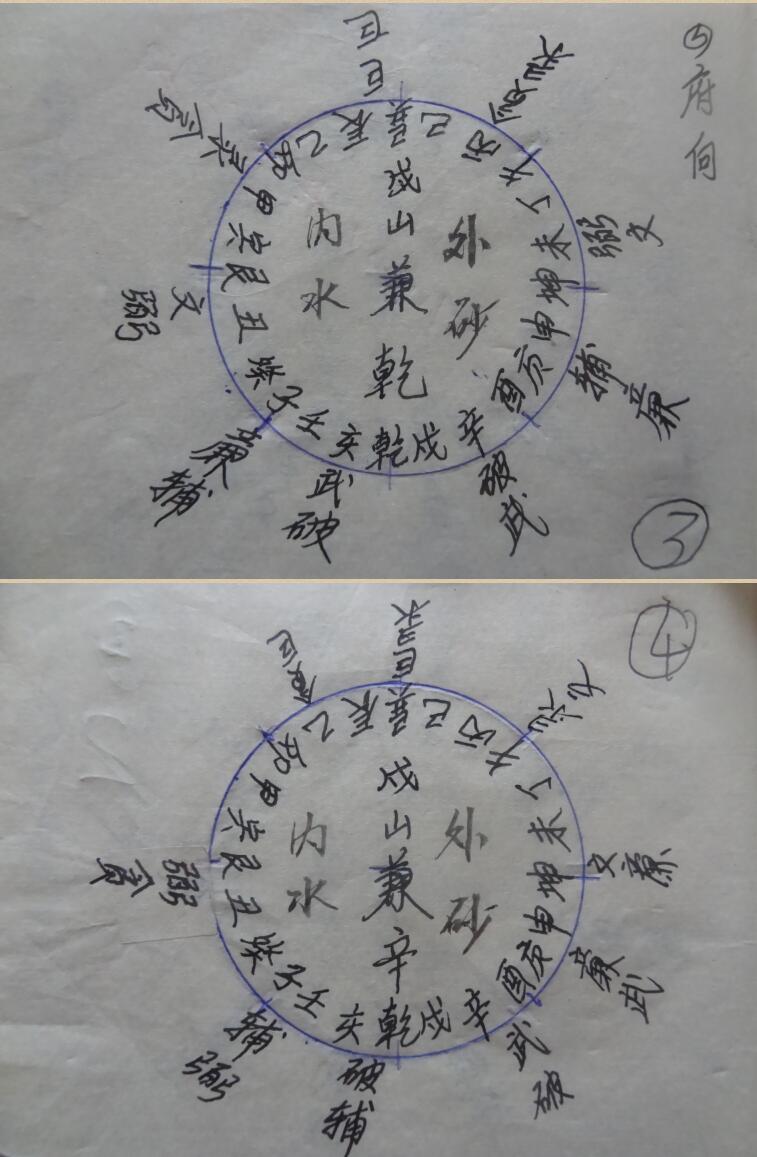 ⑤府向
戌山兼乾
内水
外砂
巽 巳 丙 午 丁 未 坤 申 庚 酉 辛 戌 乾 亥 壬 子 癸 丑 艮 寅 甲 卯 乙 辰
巨 巨
貪 禄
弼 文
輔 廉
破 武
武 破
廉 輔
文 弼
禄 貪
③
④
戌山兼辛
内水
外砂
巽 巳 丙 午 丁 未 坤 申 庚 酉 辛 戌 乾 亥 壬 子 癸 丑 艮 寅 甲 卯 乙 辰
巨 禄
禄 文
文 廉
廉 武
武 破
破 輔
輔 弼
弼 貪
貪 巨